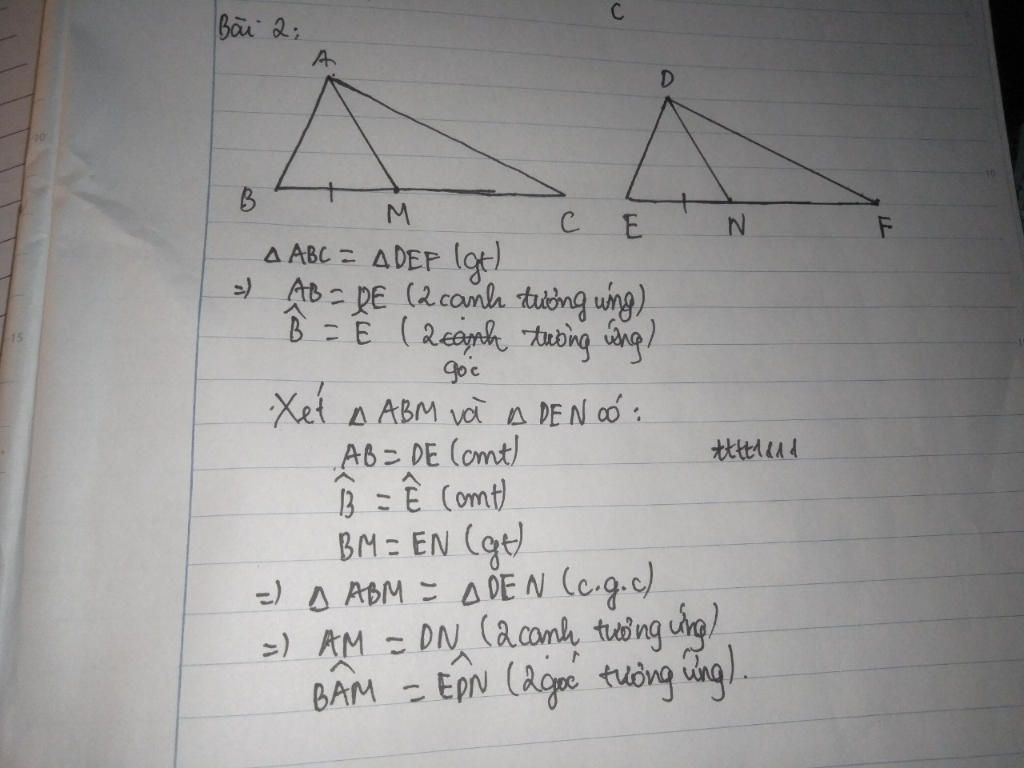 C
Bài 2:
A
D
B
M
C
E
N
F
△ ABC = △DEF (gt)
=) AB = DE (2 cạnh tương ứng)
B̂ = Ê ( 2 cạnh tương ứng)
góc
Xét △ ABM và △ DEN có:
AB = DE (cmt)
B̂ = Ê (cmt)
BM = EN (gt)
=) △ ABM = △DEN (c.g.c)
=) AM = DN (2 cạnh tương ứng)
BÂM = ED̂N (2 góc tương ứng).